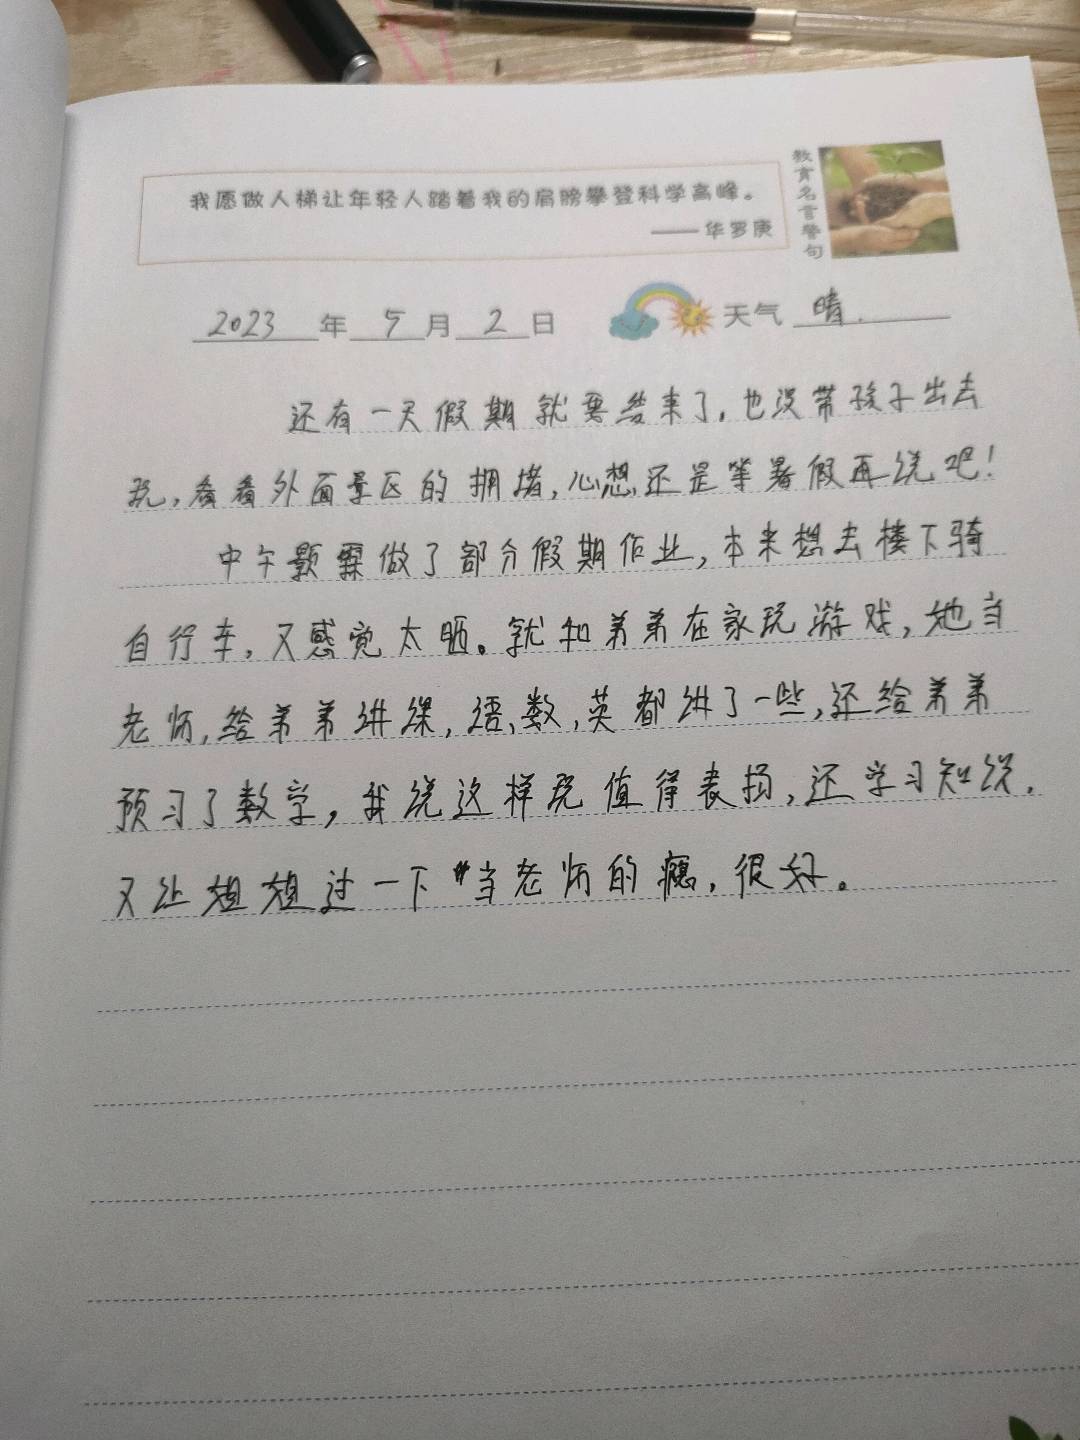 我愿做人梯让年轻人踏着我的肩膀攀登科学高峰。
——华罗庚
教育名言警句
2023年5月2日 天气 晴.
还有一天假期就要结束了，也没带孩子出去
玩，看看外面景区的拥堵，心想还是等暑假再说吧！
中午颢霖做了部分假期作业，本来想去楼下骑
自行车，又感觉太晒。就和弟弟在家玩游戏，她当
老师，给弟弟讲课，语，数，英都讲了一些，还给弟弟
预习了数学，我说这样玩值得表扬，还学习知识，
又让姐姐过一下“当老师的瘾，很好。